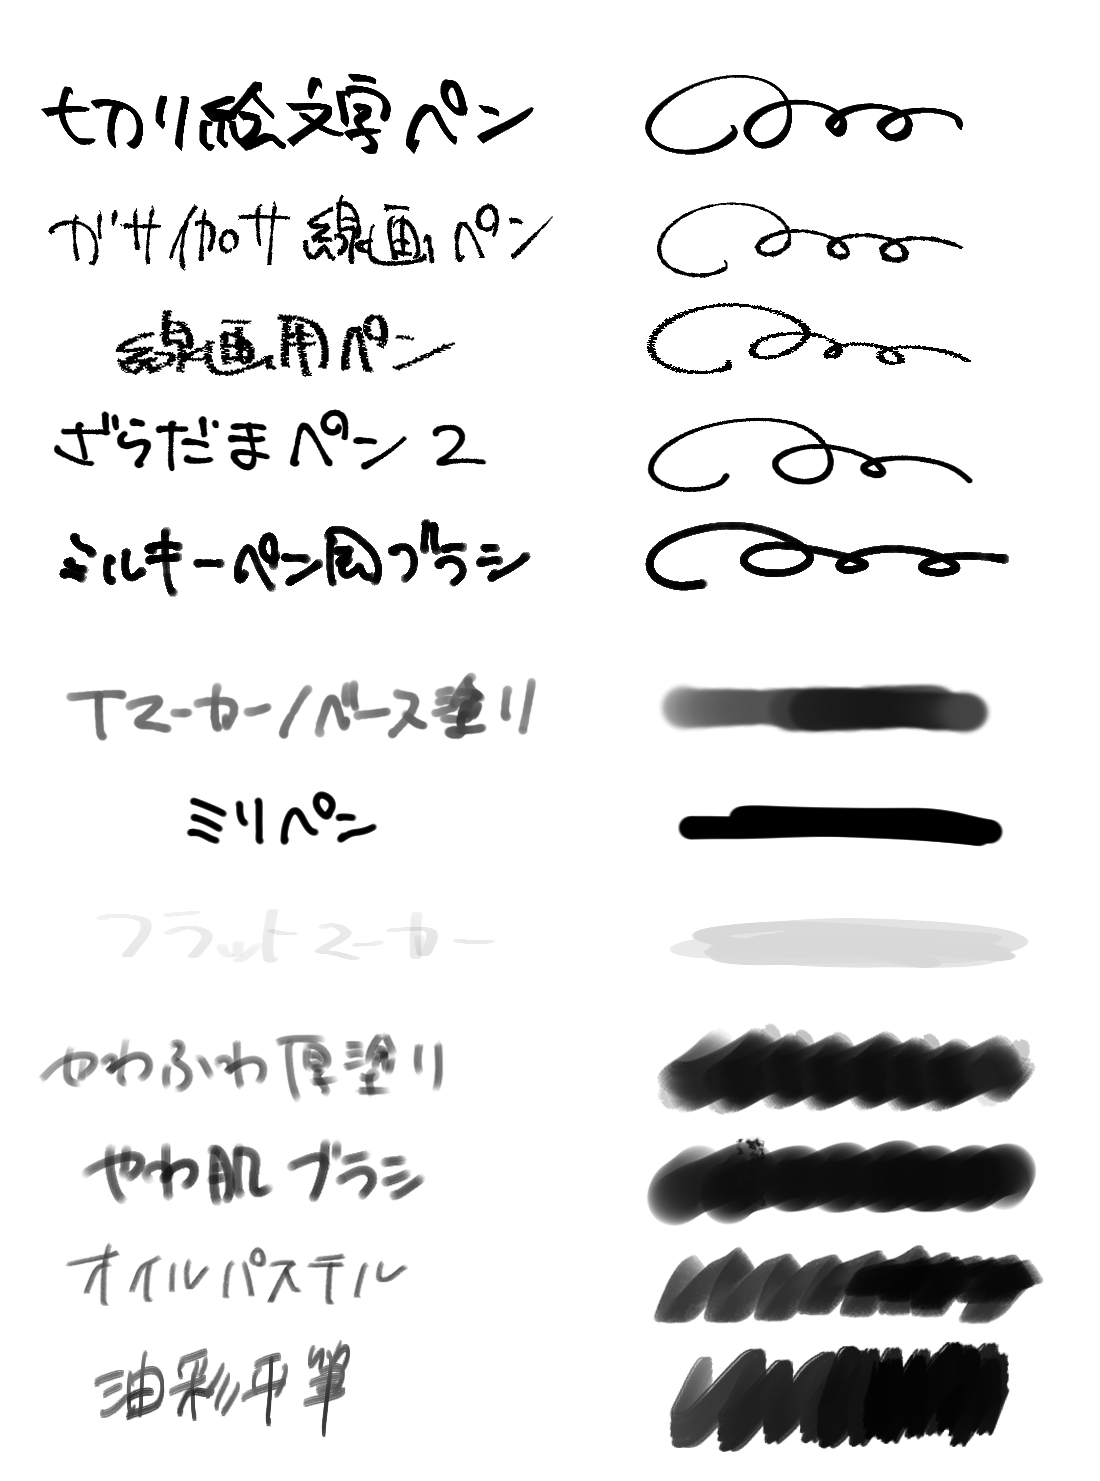 切り絵文字ペン
ガサ伽サ線画ペン
線画用ペン
ざらだまペン2
ミルキーペン風ブラシ
Tマーカー/ベース塗り
ミリペン
フラットマーカー
やわふわ厚塗り
やわ肌ブラシ
オイルパステル
油彩平筆